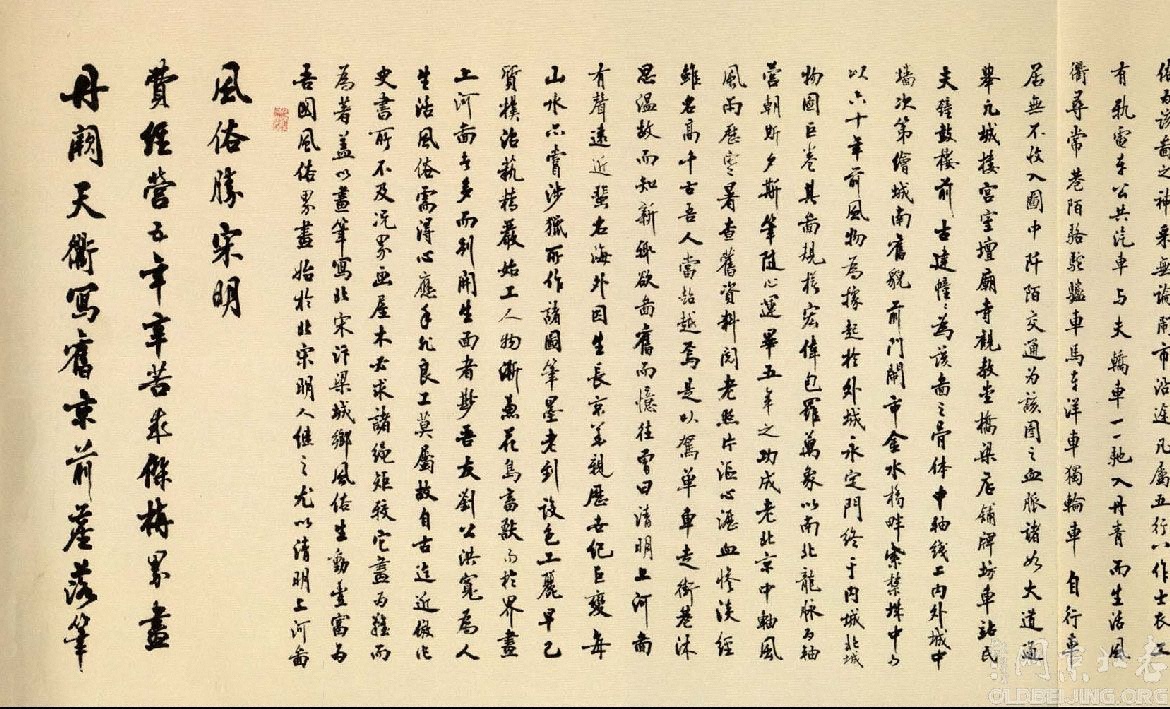 丹闕天衢寫舊京前塵落筆
費經營五年辛苦求傑構界畫
風俗勝宋明
吾國風俗界畫始於北宋明人繼之尤以清明上河圖
為著蓋以畫筆寫北宋汴梁城鄉風俗生動豐富為
史書所不及况界画屋木必求諸繩矩較它畫為難而
生活風俗需得心應手非良工莫屬故自古迄近倣作
上河圖者多而别開生面者尠吾友劉公洪寬為人
質樸治藝精嚴始工人物漸兼花鳥畜獸而於界畫
山水亦嘗涉獵所作諸圖筆墨老到設色工麗早已
有聲遠近蜚名海外因生長京華親歷世紀巨變每
思温故而知新欲畫舊而憶往嘗曰清明上河圖
雖名高千古吾人當超越焉是以駕單車走街巷沐
風雨歷寒暑查舊資料閲老照片瀝血慘淡經
營朝斯夕斯筆隨心運畢五年之功成老北京中軸風
物圖巨卷其圖規模宏偉包羅萬象以南北龍脉為軸
以六十年前風物為據起於外城永定門終于内城北城
墙次第繪城南舊貌前門鬧市金水橋畔紫禁城中
鐘鼓樓前古建幢幢為該圖之骨体中軸线上内外城中
舉凡城樓宫室壇廟寺觀教堂橋梁店铺牌坊車站民
居無不收入圖中阡陌交通為該圖之血脈諸如大道通
衢尋常巷陌駱駝驢車馬車洋車獨輪車自行車
有軌電车公共汽車与夫轎車一一馳入丹青而生活風
俗為該圖之神采無論閙市沿途凡屬五行八作士农工
老北京网
OLDBEIJING.ORG